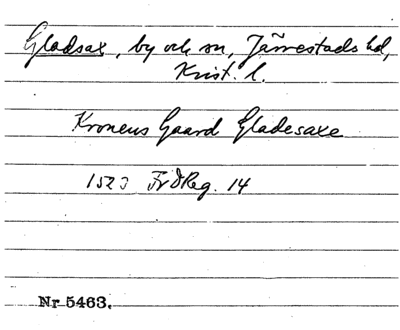 Gladsax, by och sn, Järrestads hd,
Krist. l.
Kronens Gaard Gladesaxe
1523 Fr I Reg. 14
Nr 5463.